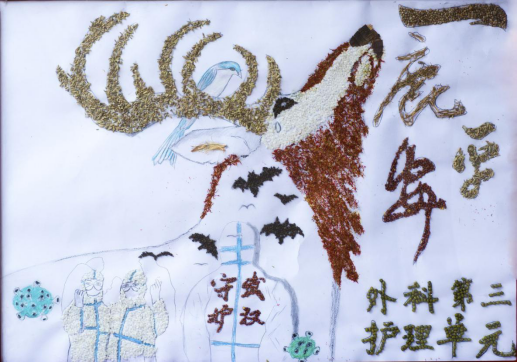 一鹿
平安
守护
武汉
外科第三
护理单元